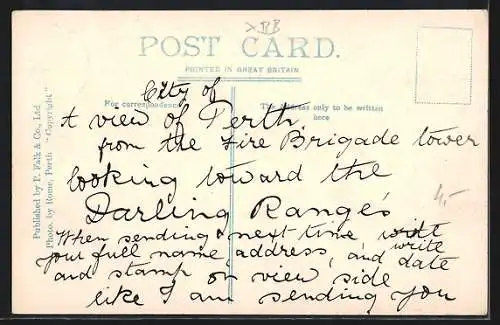 XBB
POST CARD.
PRINTED IN GREAT BRITAIN
For correspondence
The address only to be written
here
Published by P. Falk & Co., Ltd.
Photo. by Rome, Perth "Copyright"
City of
A view of Perth,
from the Fire Brigade tower
looking toward the
Darling Range's
4,-
When sending next time, write
your full name address, and date
and stamp on view side
like I am sending you